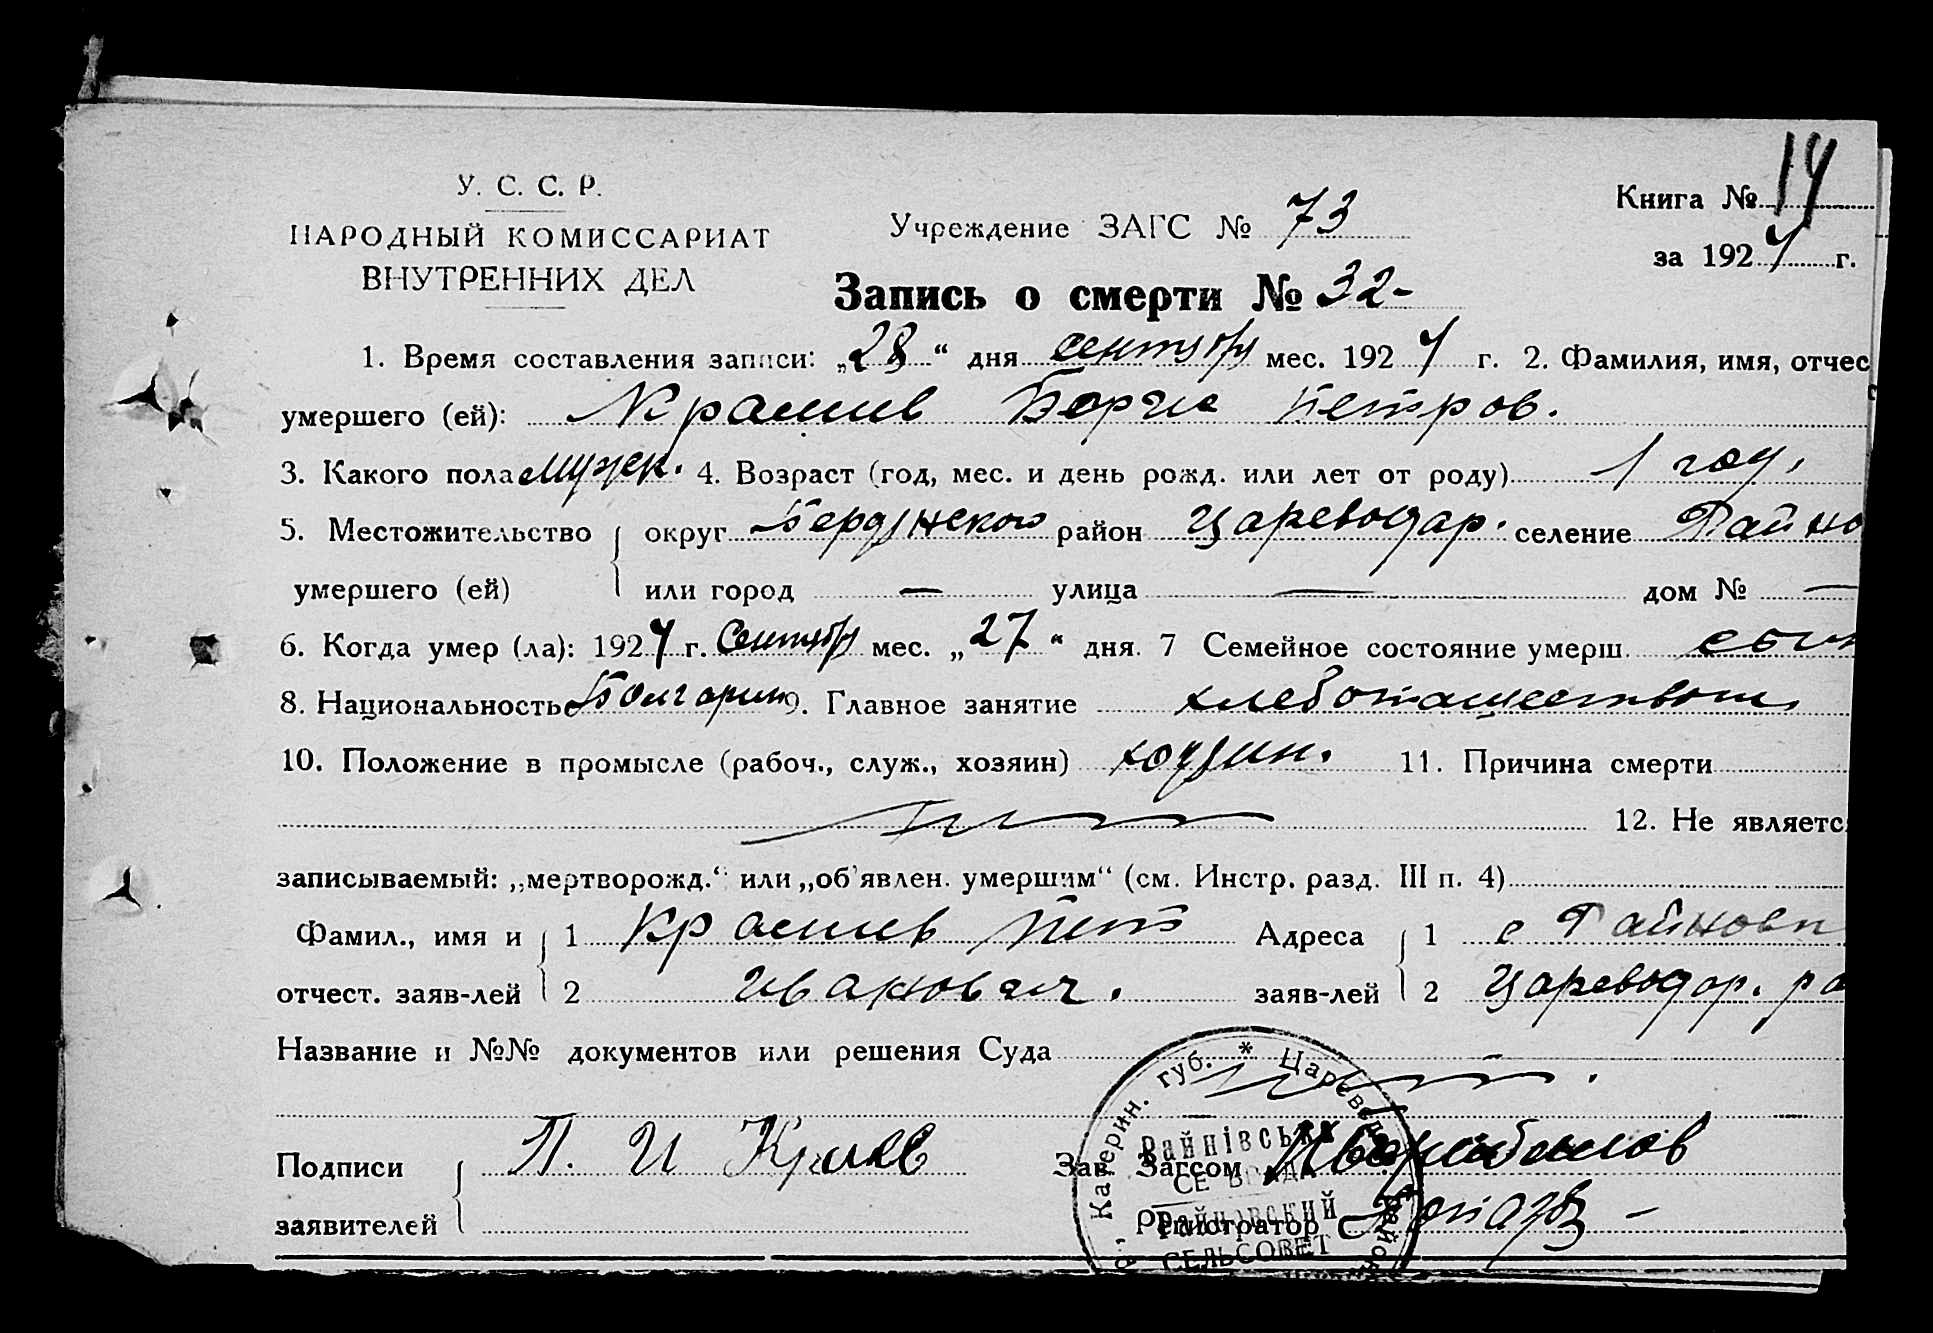 У. С. С. Р.
НАРОДНЫЙ КОМИССАРИАТ
ВНУТРЕННИХ ДЕЛ
Учреждение ЗАГС № 73
Книга № 14
за 1924 г.
Запись о смерти № 32-
1. Время составления записи: „28“ дня сентября мес. 1924 г. 2. Фамилия, имя, отчес
умершего (ей): Петров.
3. Какого пола Мужск. 4. Возраст (год, мес. и день рожд. или лет от роду) 1 год,
5. Местожительство округ Бердянского район Цареводар. селение Райно
умершего (ей) или город — улица — дом № —
6. Когда умер (ла): 1924 г. Сентября мес. „27“ дня. 7 Семейное состояние умерш. сын
8. Национальность Болгарин 9. Главное занятие хлебопашеством
10. Положение в промысле (рабоч., служ., хозяин) хозяин. 11. Причина смерти
12. Не являетс
записываемый: „мертворожд.“ или „об'явлен. умершим“ (см. Инстр. разд. III п. 4)
Фамил., имя и 1 Петр Адреса 1 с Райновк
отчест. заяв-лей 2 Иванович. заяв-лей 2 Цареводар. ра
Название и №№ документов или решения Суда
Подписи П. И Зав. Загсом
заявителей Регистратор
Катерин. губ. * Царевод
Райнівська
СЕ ВРАДА
Райновский
СЕЛЬСОВЕТ